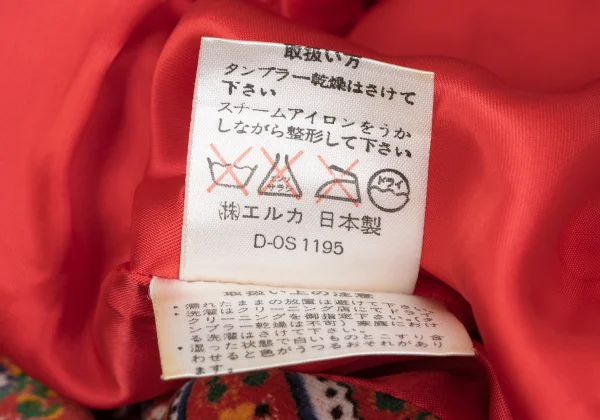 取扱い方
タンブラー乾燥はさけて
下さい
スチームアイロンをうか
しながら整形して下さい
エンソ
サラシ
ドライ
㈱エルカ 日本製
D-OS1195
取扱い上の注意
・濡れたままの放置は避けて下さい。
・洗濯はクリーニング店にてドライ
クリーニングを御指定下さい。
ンブラー乾燥は不可)家庭におけ
る洗濯はさけて下さい。
・湿った状態で白いものとこすり合
わせると色がうつるおそれがあり
ます。